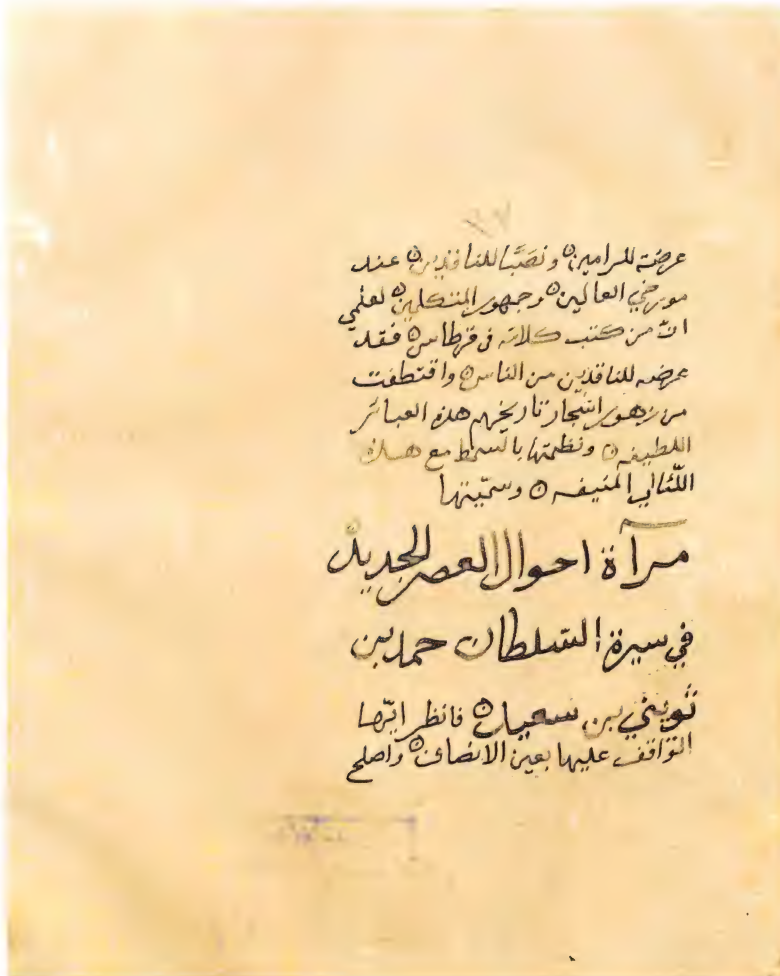 عرضة للرامين ۞ ونصبًا للناقدين ۞ عند
مورخي العالمين ۞ وجمهور المتكلمين ۞ لعلمي
انّ من كتب كلامه في قرطاس ۞ فقد
عرضه للناقدين من الناس ۞ واقتطفت
من زهور اشجار تاريخهم هذه العبائر
اللطيفه ۞ ونظمتها بالسمط مع هذه
اللئالي المنيفه ۞ وسمّيتها
مرآة احوال العصر الجديد
في سيرة السّلطان حمد بن
ثويني بن سعيد ۞ فانظر ايّها
الواقف عليها بعين الانصاف ۞ واصلح